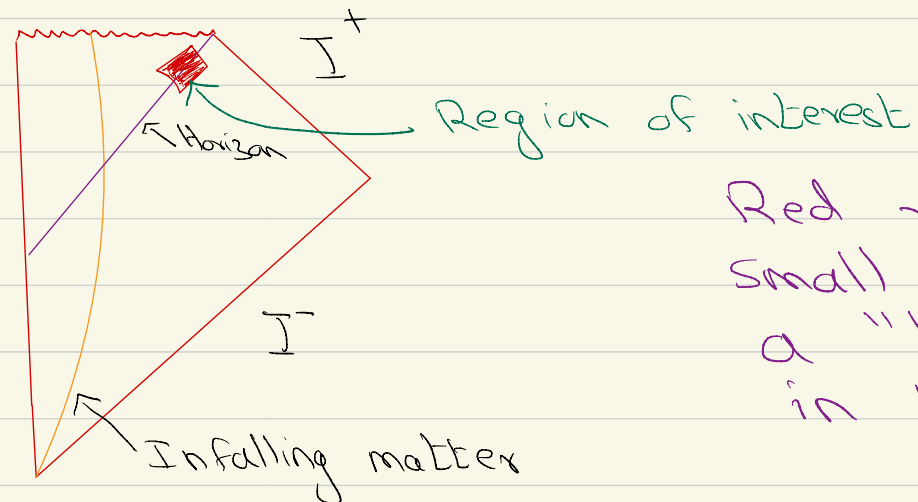 I+
Region of interest
Horizon
Red -
small
a "
in "
I-
Infalling matter